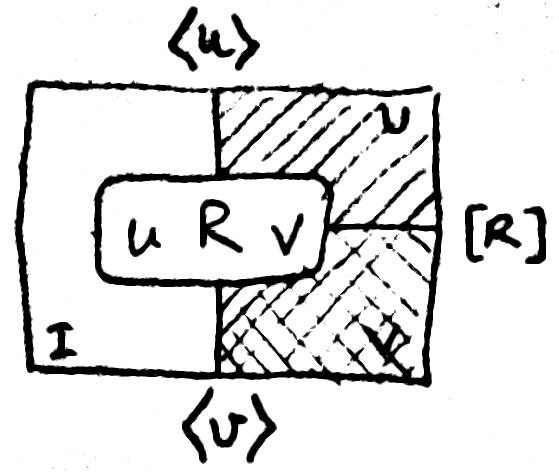 ⟨u⟩
U
u R V
[R]
I
V
⟨v⟩